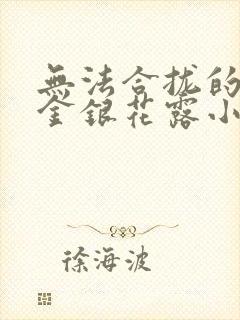 無法合拢的
金銀花露小
徐海波